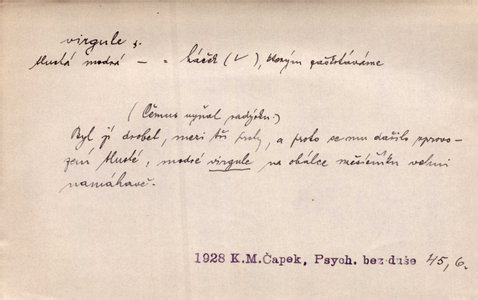 virgule, f.
tlustá modrá — = háček (V), kterým zaškrtáváme
(Čemus vyňal
Byl jí drobet, mezi tři prsty, a proto se mu dařilo vyvo-
zení tlusté, modré virgule na obálce měsíčníku velmi
namáhavě.
1928 K.M.Čapek, Psych. bez duše 45, 6.